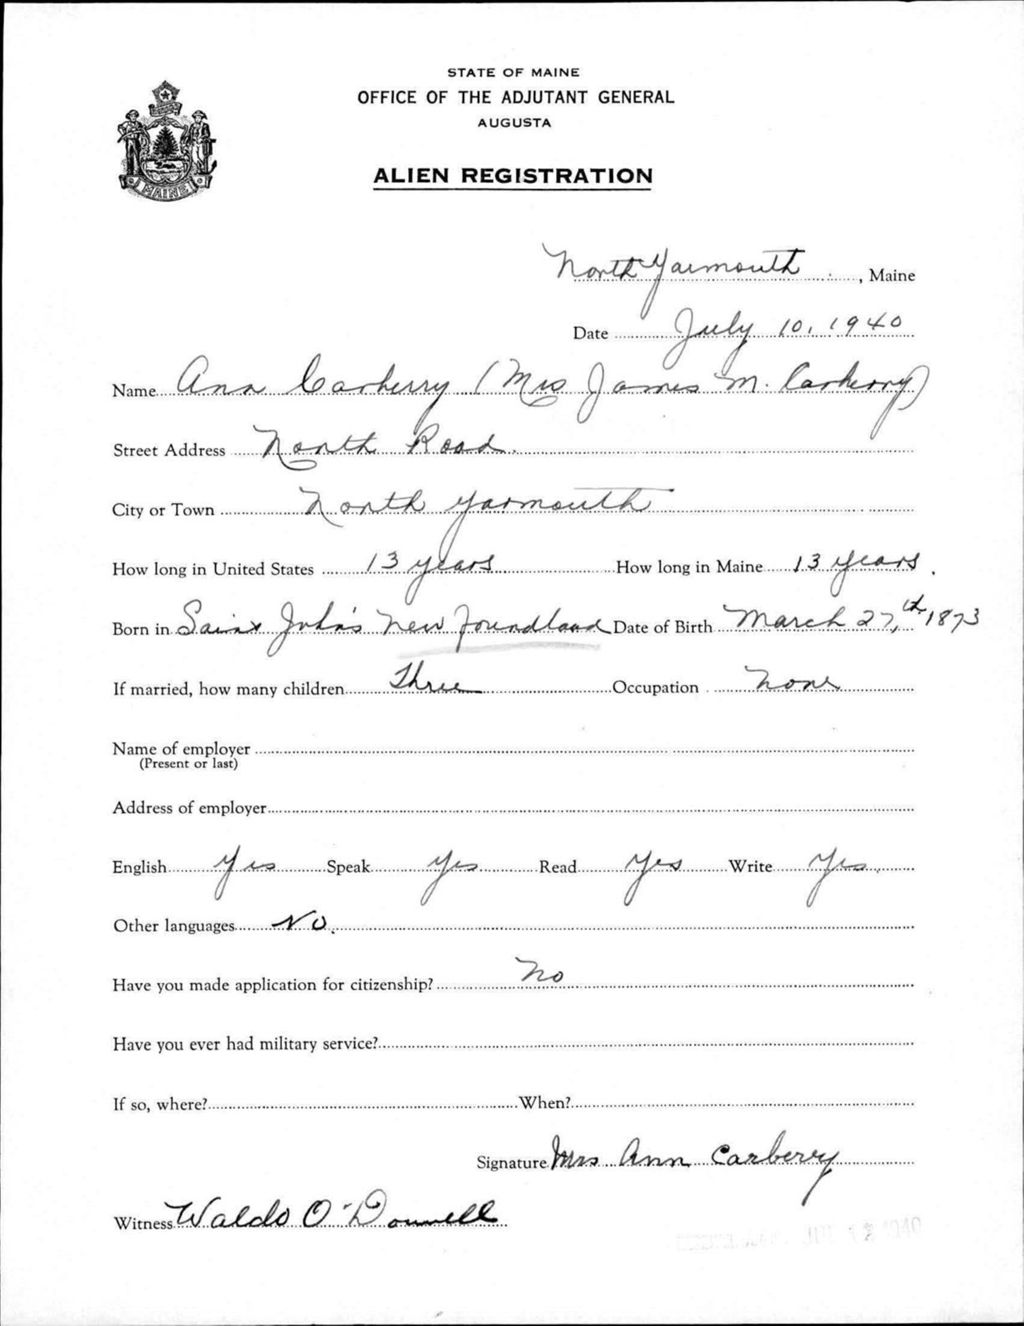 STATE OF MAINE
OFFICE OF THE ADJUTANT GENERAL
AUGUSTA
ALIEN REGISTRATION
MAINE
North Yarmouth, Maine
Date July 10, 1940
Name Ann Carberry (Mrs James M. Carberry)
Street Address North Road.
City or Town North Yarmouth
How long in United States 13 years How long in Maine 13 years.
Born in Saint John's New Foundland Date of Birth March 27,th 1873
If married, how many children Three Occupation None
Name of employer
(Present or last)
Address of employer
English Yes Speak Yes Read Yes Write Yes
Other languages NO.
Have you made application for citizenship? No
Have you ever had military service?
If so, where? When?
Signature Mrs Ann Carberry
Witness Waldo O'Donnell
1940